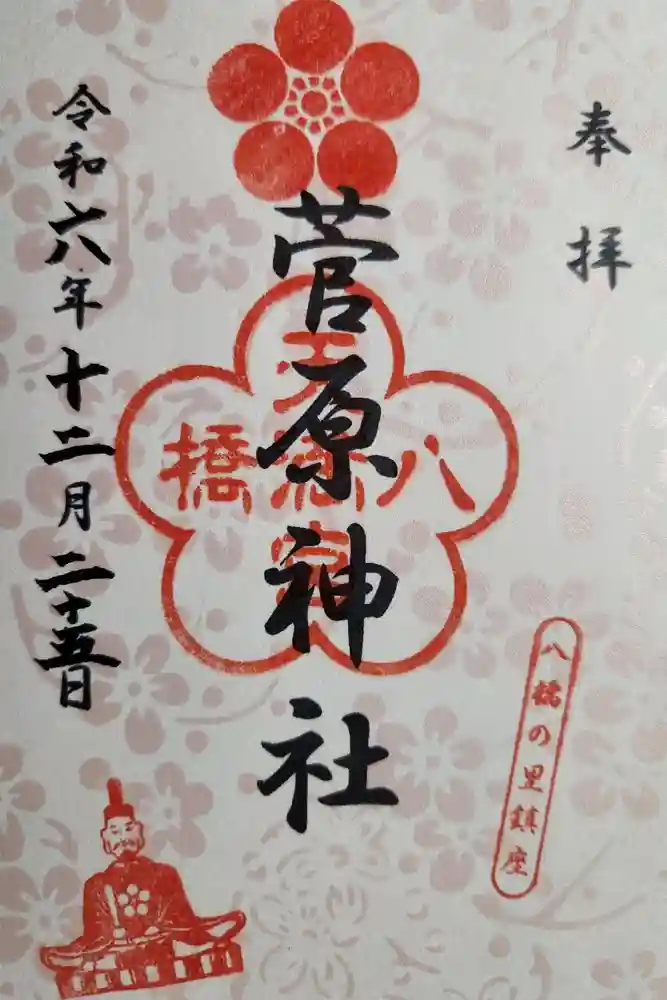 奉拝
八橋の里鎮座
菅原神社
八橋
天満宮
令和六年十二月二十五日